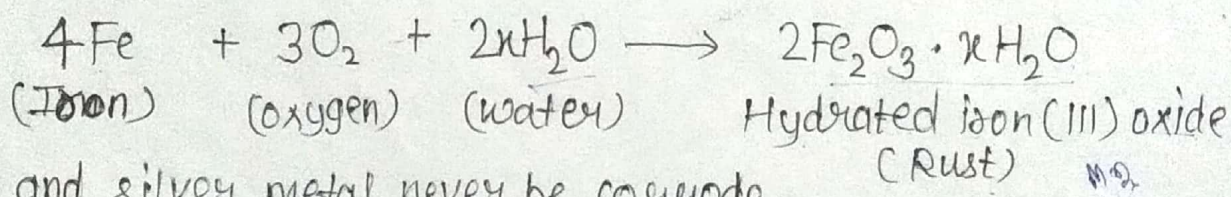 4Fe + 3O₂ + 2xH₂O ⟶ 2Fe₂O₃ · xH₂O
(Iron) (oxygen) (water) Hydrated iron (III) oxide
(Rust)
and silver metal never be